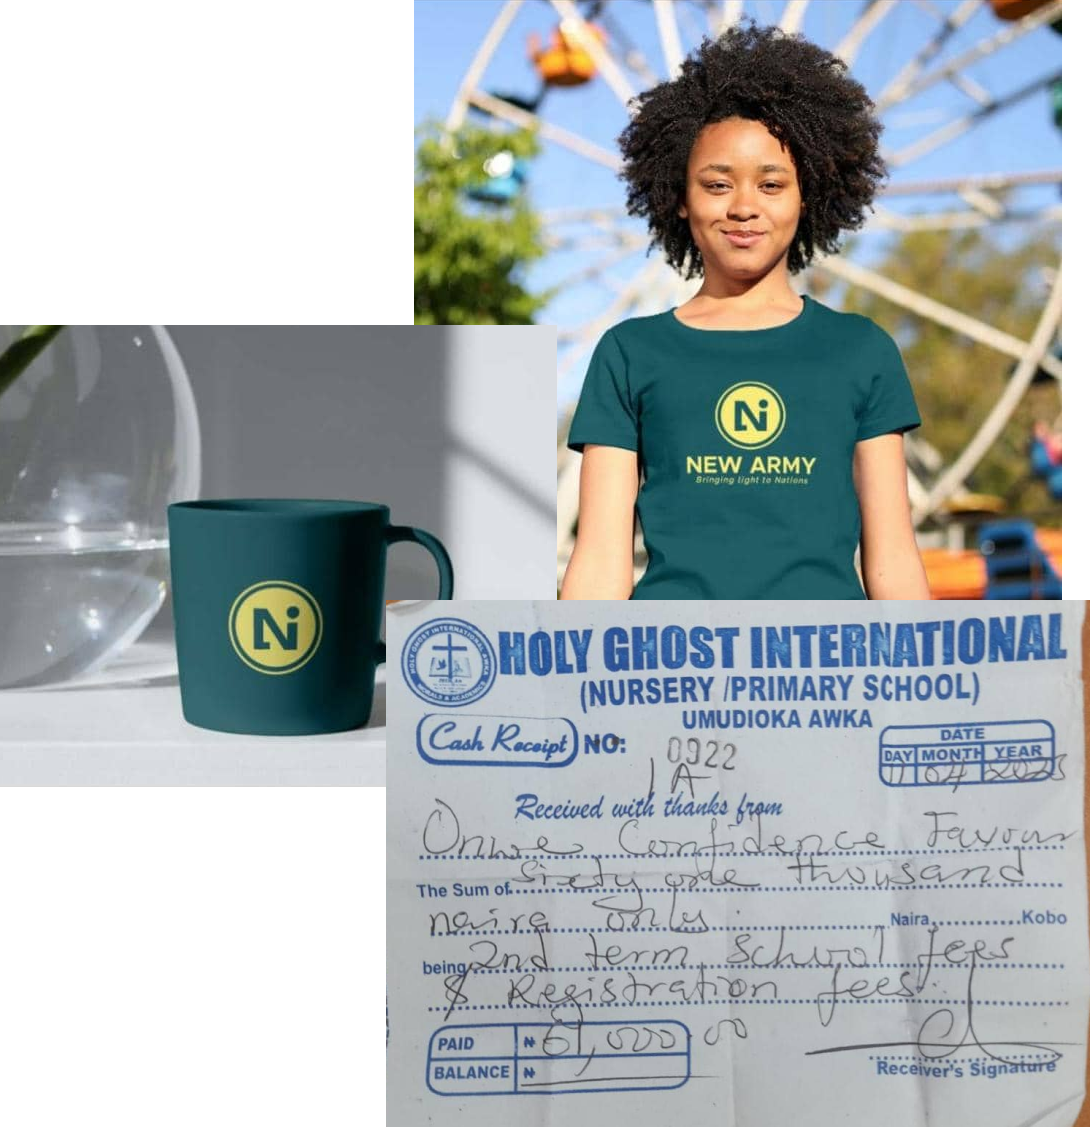 Ni
NEW ARMY
Bringing light to Nations
Ni
HOLY GHOST INTERNATIONAL AWKA
MORALS & ACADEMICS
HOLY GHOST INTERNATIONAL
(NURSERY /PRIMARY SCHOOL)
UMUDIOKA AWKA
Cash Receipt NO: 0922
DATE
DAY MONTH YEAR
11 04 2025
1A
Received with thanks from
Onwe Confidence Favour
The Sum of Sixty one thousand
naira only. Naira Kobo
being 2nd term School fees
& Registration fees.
PAID ₦ 61,000.00
BALANCE ₦
Receiver's Signature